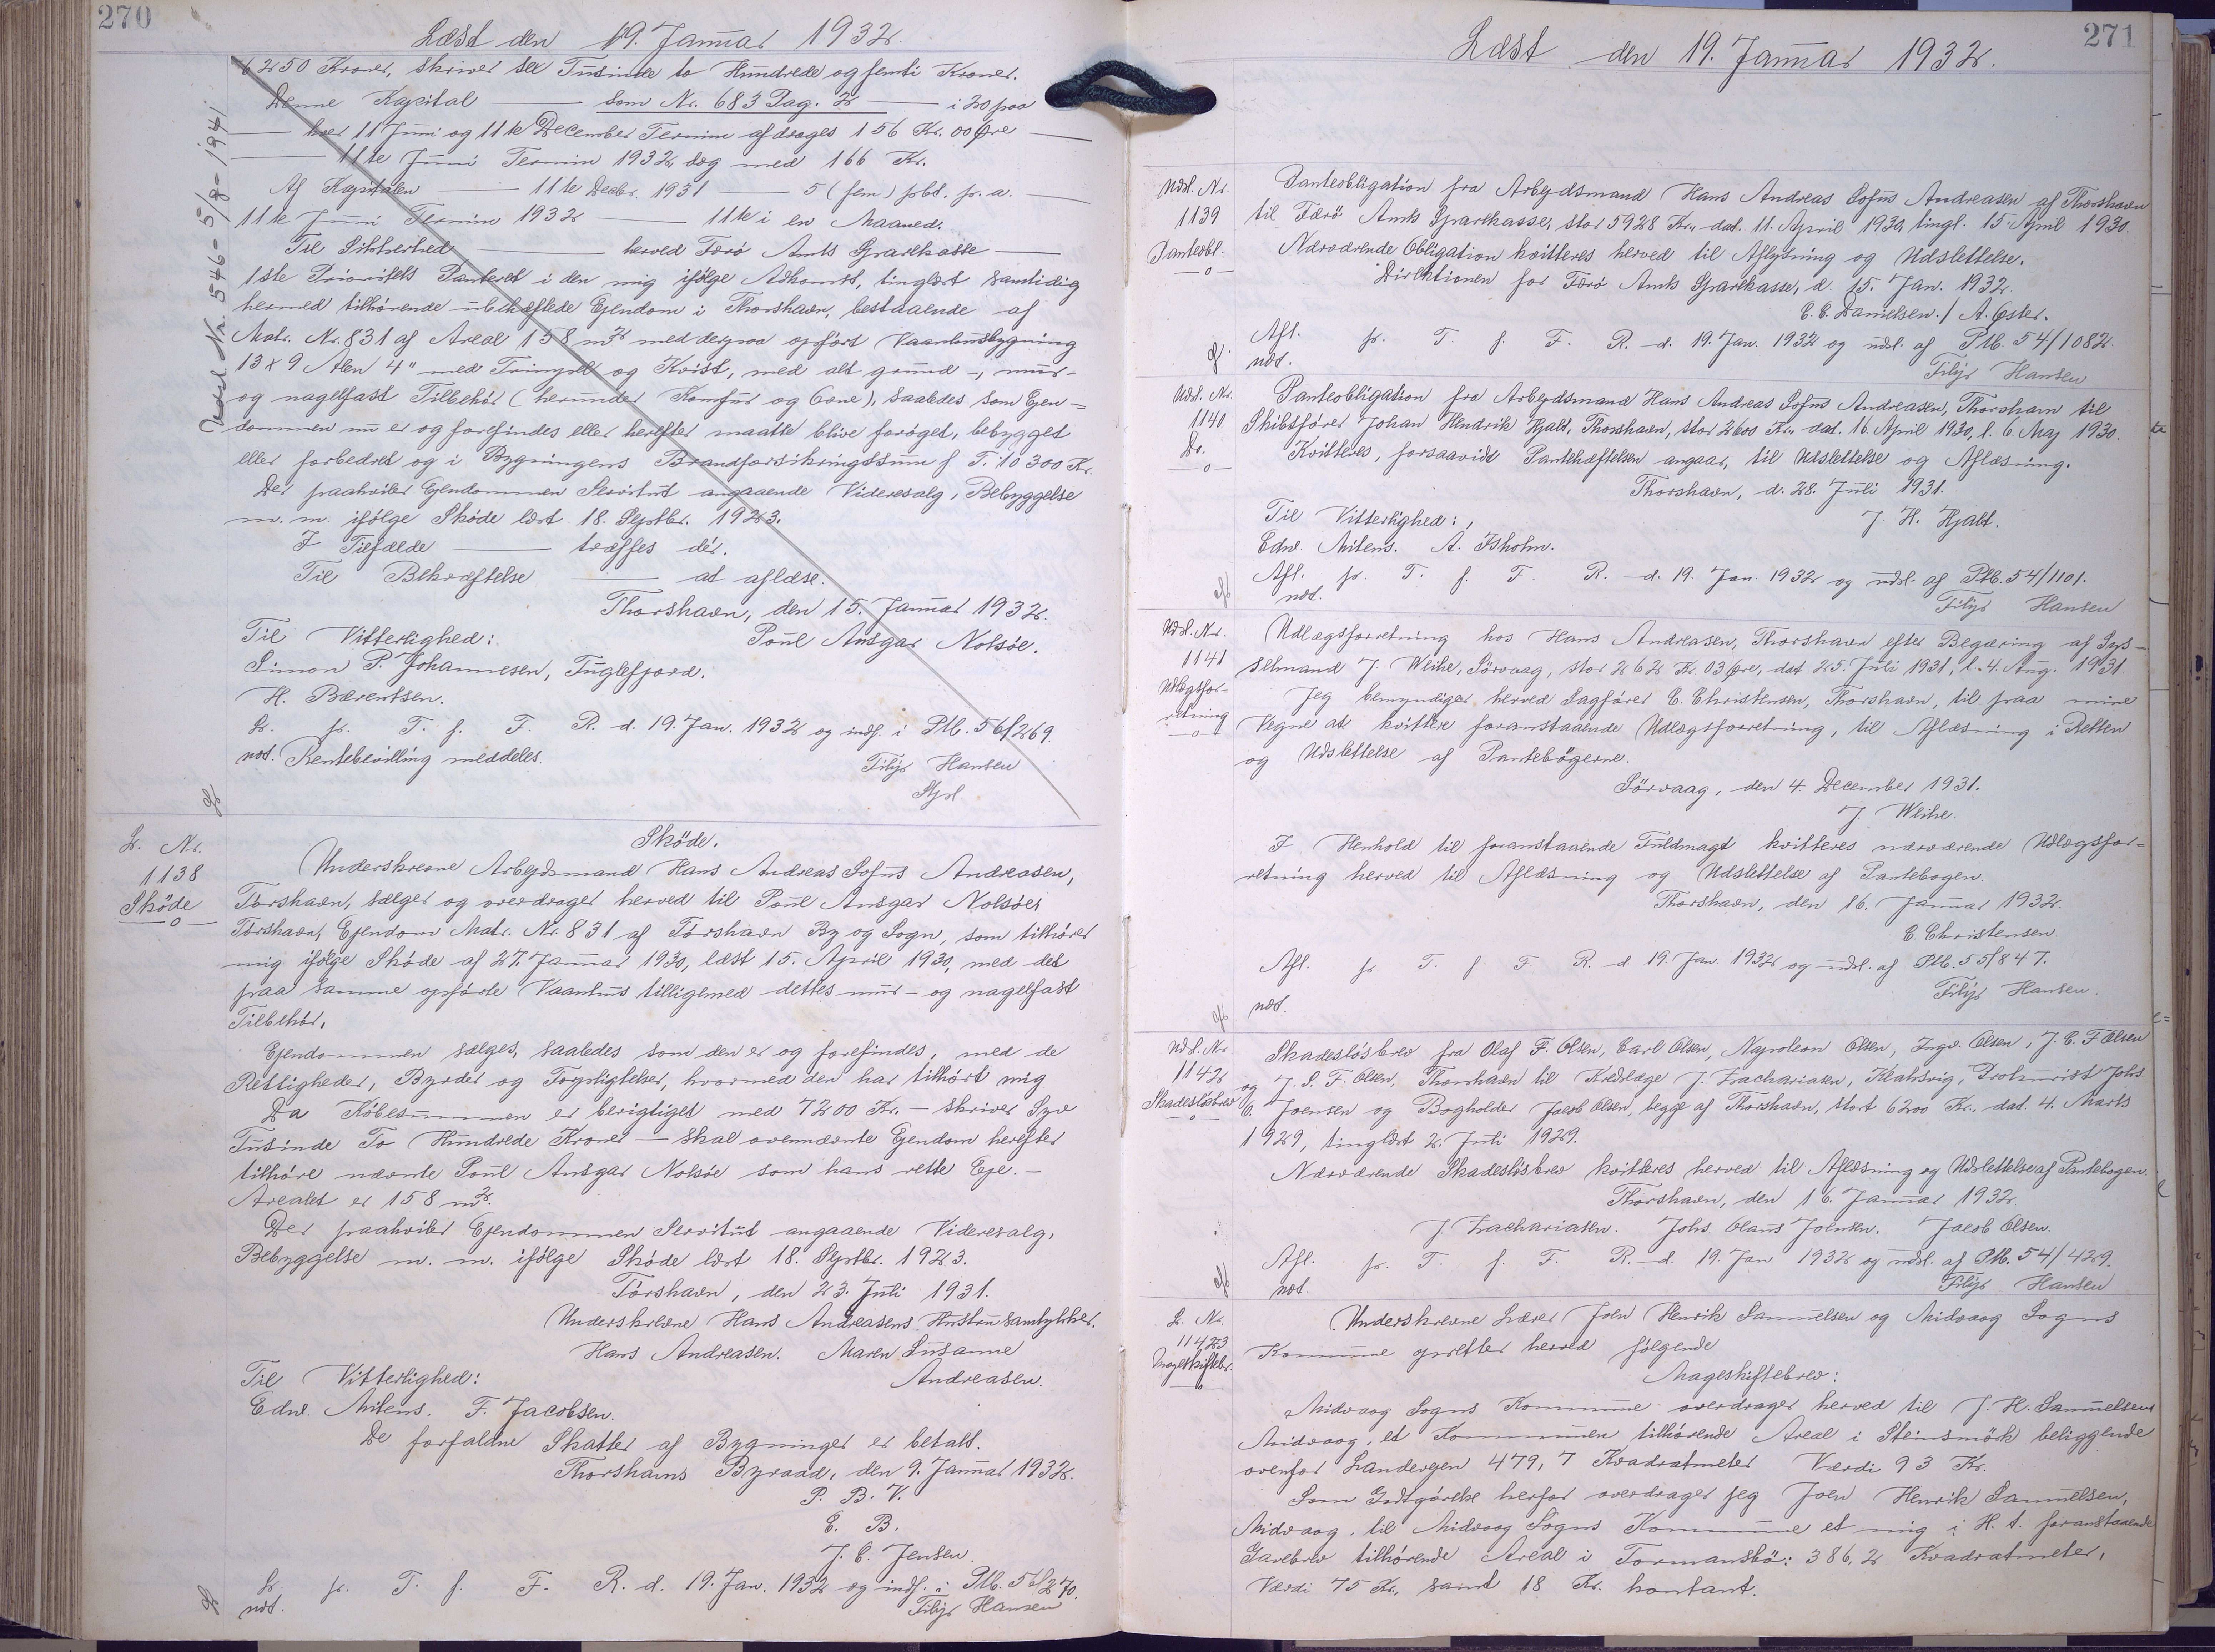 270
Læst den 19. Januar 1932.
6250 Kroner, skriver sex Tusinde to Hundrede og femti Kroner.
Denne Kapital — som Nr. 683 Pag. 2 — i 20 paa
— hver 11 Juni og 11te December Termin afdrages 156 Kr. 00 Øre —
— 11te Juni Termin 1932, dog med 166 Kr.
Af Kapitalen — 11te Decbr. 1931 — 5 (fem) pbt. p. a. —
11te Juni Termin 1932 — 11te i en Maaned.
Til Sikkerhed — herved Færø Amts Sparekasse —
1ste Prioritets Panteret i den mig ifølge Adkomst, tinglæst samtidig
hermed tilhørende ubehæftede Ejendom i Thorshavn, bestaaende af
Matr. Nr. 831 af Areal 158 m² med derpaa opført Vaanhusbygning
13 x 9 Alen 4" med Tvingsel og Kvist, med alt grund-, mur-
og nagelfast Tilbehør (herunder Komfur og Ovne), saaledes som Ejen=
dommen nu er og forefindes eller herefter maatte blive forøget, bebygget
eller forbedret og i Bygningens Brandforsikringssum f. T. 10300 Kr.
Der paahviler Ejendommen Servitut angaaende Videresalg, Bebyggelse
m. m. ifølge Skøde læst 18. Septbr. 1923.
I Tilfælde — træffes dér.
Til Bekræftelse — at aflæse.
Thorshavn, den 15. Januar 1932.
Til Vitterlighed: Poul Ansgar Nolsøe.
Simon P. Johannesen, Fuglefjord.
H. Bærentsen.
L. fr. T. f. F. R. d. 19. Jan. 1932 og indf. i Ptb. 56/269.
not. Rentebevilling meddeles.
Filip Hansen
Udsl. Nr. 546 - 5/8 - 1941
L. Nr.
1138
Skøde
Skøde.
Underskrevne Arbejdsmand Hans Andreas Sofus Andreasen,
Tórshavn, sælger og overdrager herved til Poul Ansgar Nolsøe,
Tórshavn, Ejendom Matr. Nr. 831 af Tórshavn By og Sogn, som tilhører
mig ifølge Skøde af 27. Januar 1930, læst 15. April 1930, med det
paa samme opførte Vaanhus tilligemed dettes mur- og nagelfast
Tilbehør.
Ejendommen sælges, saaledes som den er og forefindes, med de
Rettigheder, Byrder og Forpligtelser, hvormed den har tilhørt mig
Da Købesummen er berigtiget med 7200 Kr. — skriver Syv
Tusinde To Hundrede Kroner — skal ovennævnte Ejendom herefter
tilhøre nævnte Poul Ansgar Nolsøe som hans rette Eje. —
Arealet er 158 m².
Der paahviler Ejendommen Servitut angaaende Videresalg,
Bebyggelse m. m. ifølge Skøde læst 18. Septbr. 1923.
Tórshavn, den 23. Juli 1931.
Underskrevne Hans Andreasens Hustru samtykker.
Hans Andreasen. Maren Susanne
Til Vitterlighed: Andreasen.
Edw. Mitens. F. Jacobsen.
De forfaldne Skatter af Bygninger er betalt.
Thorshavns Byraad, den 9. Januar 1932.
P. B. V.
E. B.
J. C. Jensen.
L. fr. T. f. F. R. d. 19. Jan. 1932 og indf. i Ptb. 56/270.
not. Filip Hansen
271
Læst den 19. Januar 1932.
Udsl. Nr.
1139
Panteobl.
Panteobligation fra Arbejdsmand Hans Andreas Sofus Andreasen af Thorshavn
til Færø Amts Sparekasse, stor 5928 Kr., dat. 11. April 1930, tingl. 15. April 1930.
Nærværende Obligation kvitteres herved til Aflysning og Udslettelse.
Direktionen for Færø Amts Sparekasse, d. 15. Jan. 1932.
C. C. Danielsen. / A. Øster.
Afl. fr. T. f. F. R. d. 19. Jan. 1932 og udsl. af Ptb. 54/1082.
not. Filip Hansen
Udsl. Nr.
1140
Do.
Panteobligation fra Arbejdsmand Hans Andreas Sofus Andreasen, Thorshavn til
Skibsfører Johan Hendrik Hjalt, Thorshavn, stor 2600 Kr., dat. 16. April 1930, l. 6. Maj 1930.
Kvitteres, forsaavidt Pantehæftelsen angaar, til Udslettelse og Aflæsning.
Thorshavn, d. 28. Juli 1931.
Til Vitterlighed: J. H. Hjalt.
Edw. Mitens. A. Isholm.
Afl. fr. T. f. F. R. d. 19. Jan. 1932 og udsl. af Ptb. 54/1101.
not. Filip Hansen
Udsl. Nr.
1141
Udlægsfor=
retning
Udlægsforretning hos Hans Andreasen, Thorshavn efter Begæring af Sys-
selmand J. Weihe, Sörvaag, stor 262 Kr. 03 Øre, dat 25. Juli 1931, l. 4. Aug. 1931.
Jeg bemyndiger herved Sagfører C. Christensen, Thorshavn, til paa mine
Vegne at kvittere foranstaaende Udlægsforretning, til Aflæsning i Retten
og Udslettelse af Pantebøgerne.
Sörvaag, den 4 December 1931.
J. Weihe.
I Henhold til foranstaaende Fuldmagt kvitteres nærværende Udlægsfor=
retning herved til Aflæsning og Udslettelse af Pantebogen.
Thorshavn, den 16. Januar 1932.
C. Christensen.
Afl. fr. T. f. F R. d. 19. Jan. 1932 og udsl. af Ptb. 55/847.
not. Filip Hansen.
Udsl. Nr
1142
Skadesløsbrev
Skadesløsbrev fra Olaf F. Olsen, Carl Olsen, Napoleon Olsen, Ingv. Olsen, J. C. F Olsen
og J. S. F. Olsen, Thorshavn til Kredslæge J. Zachariasen, Klaksvig, Prokurist Johs.
O. Joensen og Bogholder Jacob Olsen, begge af Thorshavn, stort 6200 Kr., dat. 4. Marts
1929, tinglæst 2. Juli 1929.
Nærværende Skadesløsbrev kvitteres herved til Aflæsning og Udslettelse af Pantebogen.
Thorshavn, den 16. Januar 1932.
J. Zachariasen. Johs. Olaus Joensen. Jacob Olsen.
Afl. fr. T. f. F. R. d. 19. Jan. 1932 og udsl. af Ptb. 54/429.
not. Filip Hansen
L. Nr.
1143
Mageskiftebr.
Underskrevne Lærer Joen Henrik Samuelsen og Midvaag Sogns
Kommune opretter herved følgende
Mageskiftebrev:
Midvaag Sogns Kommune overdrager herved til J. H. Samuelsen
Midvaag, et Kommunen tilhørende Areal i Steinsmörk beliggende
ovenfor Landevejen 479,7 Kvadratmeter Værdi 93 Kr.
Som Godtgørelse herfor overdrager jeg Joen Henrik Samuelsen,
Midvaag, til Midvaag Sogns Kommune et mig i H. t. foranstaaende
Gavebrev tilhørende Areal i Tormansbö: 386,2 Kvadratmeter,
Værdi 75 Kr., samt 18 Kr. kontant.